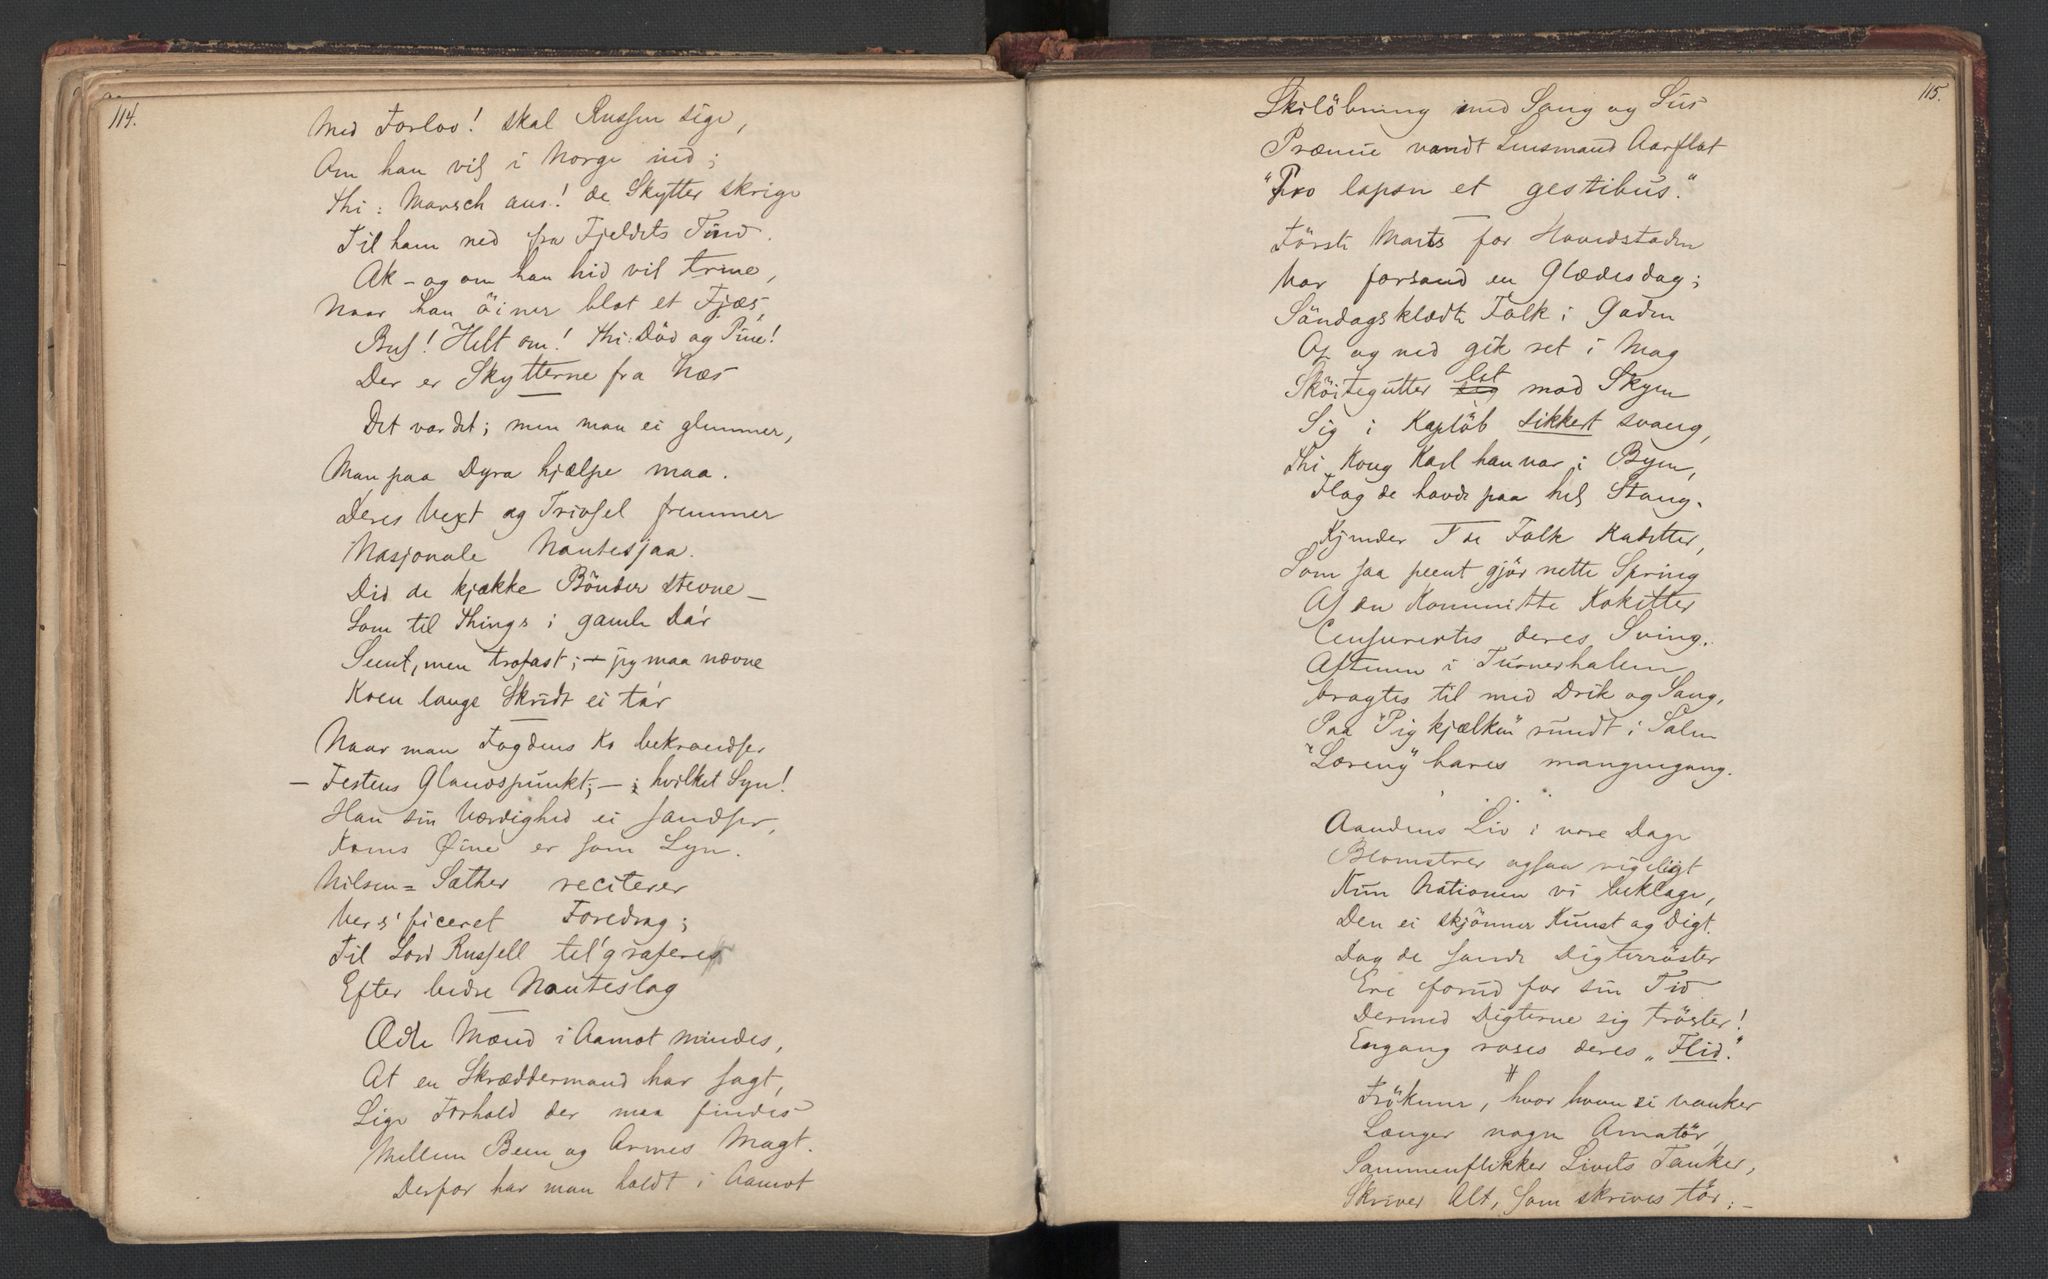 114.
Med Forlov! skal Russen sige,
Om han vil i Norge ind;
Thi: Marsch aus! de Skytter skrige
Til ham ned fra Fjeldets Tind.
Ak – og om han hid vil trine,
Naar han öiner blot et Fjæs,
Buf! Helt om! Thi: Död og Pine!
Der er Skytterne fra Næs
Det var det; men man ei glemmer,
Man paa Dyra hjælpe maa.
Deres Vext og Trivsel fremmer
Nasjonale Nautesjaa.
Did de kjække Bönder stevne –
Som til Things i gamle Da'r
Seent, men trofast; – jeg maa nævne
Koen lange Skridt ei ta'r
Naar man Fogdens Ko bekrandser
– Festens Glandspunkt; – hvilket Syn!
Han sin Værdighed ei sandser,
Koens Øine er som Lyn.
Nilsen=Sæther reciterer
Versificeret Foredrag;
Til Lord Russell tel'graferes
Efter bedre Nauteslag
Ædle Mænd i Aamot mindes,
At en Skræddermand har sagt,
Lige Forhold der maa findes
Mellem Been og Armes Magt.
Derfor har man holdt i Aamot
115.
Skilöbning med Sang og Sus
Præmie vandt Lensmand Aarflot
"Pro lapsu et gestibus."
Förste Marts for Hovedstaden
Var forsand en Glædesdag;
Söndagsklædte Folk i Gaden
Op og ned gik ret i Mag
Sköitegutter let mod Skyen
Sig i Kaplöb sikkert svang,
Thi Kong Karl han var i Byen,
Flag de havde paa hel Stang.
Kjender I de Folk Kadetter,
Som saa peent gjör nette Spring
Af en Kommitte Koketter
Censurertes deres Sving.
Aftenen i Turnerhalen
bragtes til med Drik og Sang,
Paa "Pigkjælken" rundt i Salen
"Loreng" bares mangengang.
Aandens Liv i vore Dage
Blomstrer ogsaa rigeligt
Kun Nationen vi beklage,
Den ei skjönner Kunst og Digt.
Dog de sande Digterröster
Ere forud for sin Tid.
Dermed Digterne sig tröster!
Engang roses deres "Flid."
Frökener, hvor hvem ei vanker
Længer nogen Amatör,
Sammenflikker Livets Tanker,
Skriver Alt, som skrives tör; –